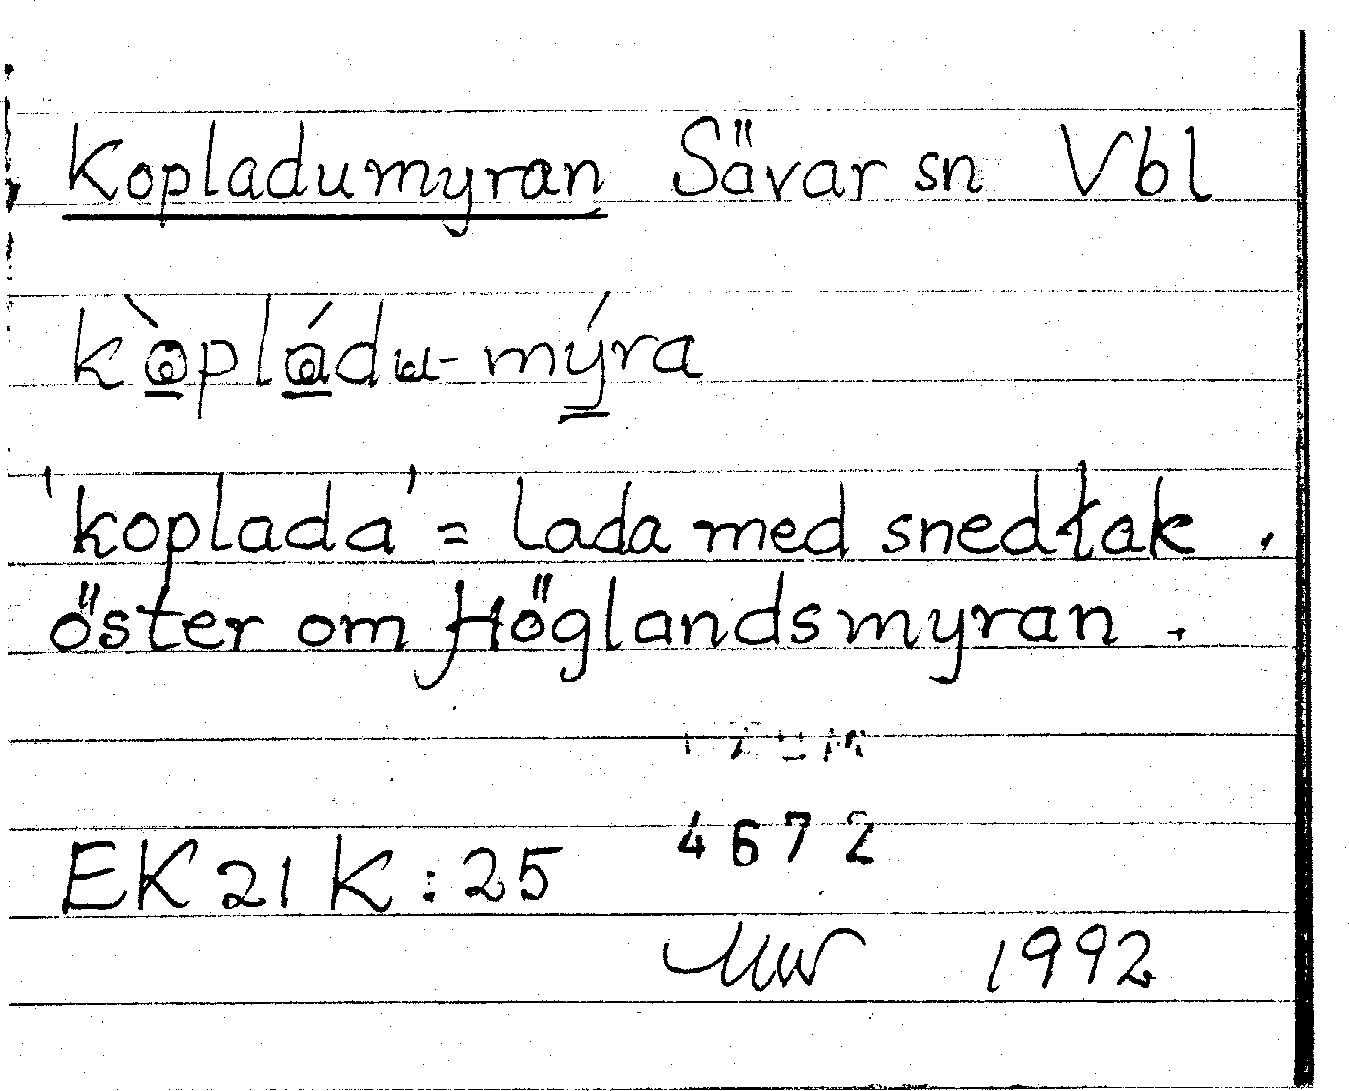 Kopladumyran Sävar sn Vbl
kòpládu-mýra
'koplada' = lada med snedtak.
öster om Höglandsmyran.
4672
EK 21 K : 25
1992